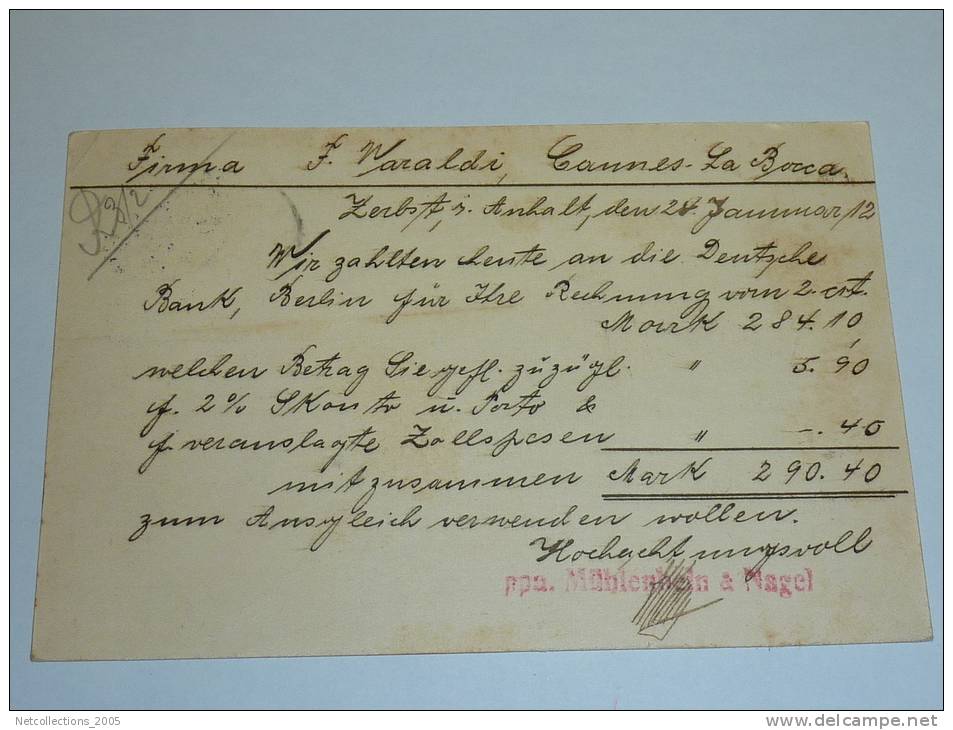 Firma F. Varaldi, Cannes-La Bocca.
R 3/2
Zerbst, i. Anhalt, den 24 Januar 12
Wir zahlten heute an die Deutsche
Bank, Berlin für Ihre Rechnung vom 2. crt.
Mark 284.10
welchen Betrag Sie gefl. zuzügl. " 5.90
f. 2% Skonto u. Porto &
f. veranslagte Zollspesen " -.40
mit zusammen Mark 290.40
zum Ausgleich verwenden wollen.
Hochachtungsvoll
ppa. Mühlenhein & Nagel
Netcollections_2005
www.delcampe.net